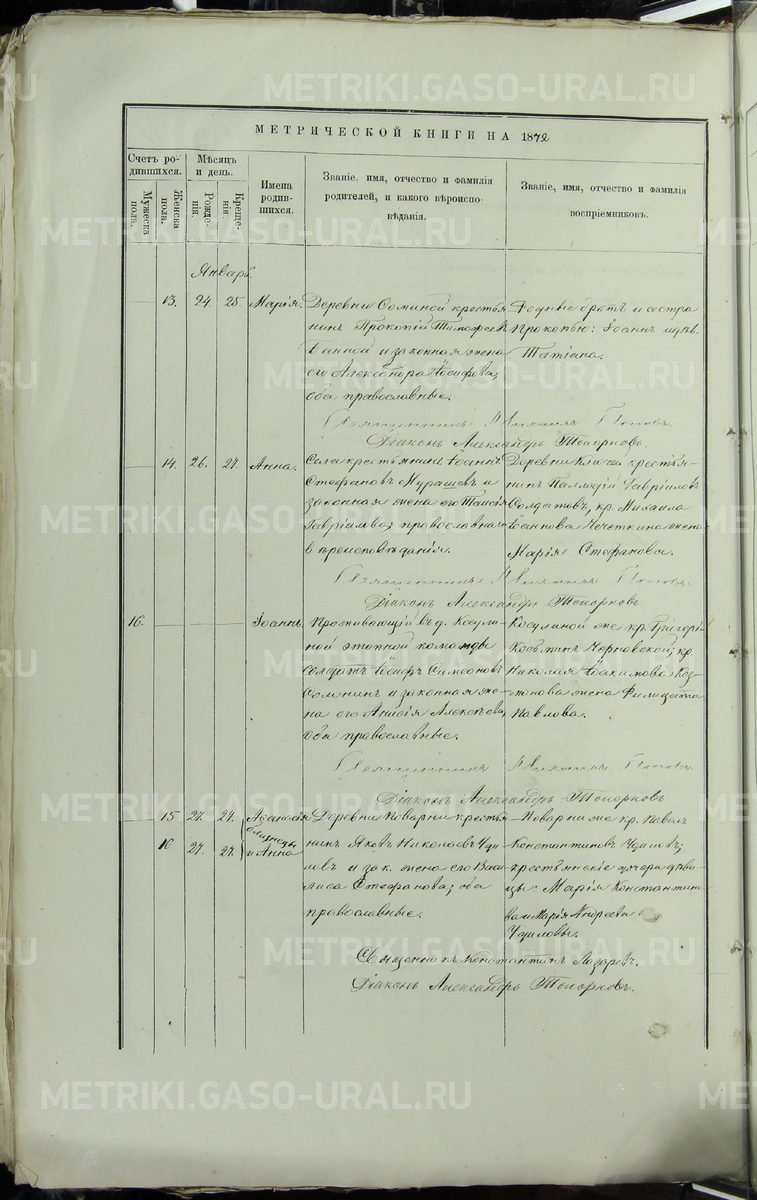 METRIKI.GASO-URAL.RU
МЕТРИЧЕСКОЙ КНИГИ НА 1872
Счетъ родившихся.
Мужеска пола.
Женска пола.
Мѣсяцъ и день.
Рожденія.
Крещенія.
Имена родившихся.
Званіе, имя, отчество и фамилія родителей, и какого вѣроисповѣданія.
Званіе, имя, отчество и фамилія воспріемниковъ.
Январь.
13. 24 25. Марія.
Деревни Соминой крестья
нинъ Прокопій Тимофеевъ
и законная жена
его Александра Іосифова;
оба православные.
Родные братъ и сестра
Прокопью: Іоаннъ и дѣв.
Татіана.
Священникъ Поповъ.
Діаконъ Александръ Топорковъ.
14. 26. 27. Анна.
Села крестьянинъ Іоаннъ
Стефановъ Мурашевъ и
законная жена его Таисія
Гавріилова; православнаго
вѣроисповѣданія.
Деревни крестья-
нинъ Палладій Гавріиловъ
Солдатовъ, кр. Михаила
Іоаннова Чечеткина жена
Марія Стефанова.
Священникъ Поповъ.
Діаконъ Александръ Топорковъ.
16. Іоаннъ.
Проживающій въ д. Косули-
ной этапной команды
солдатъ Іосифъ Симеоновъ
Соломинъ и законная же-
на его Анисія Алексѣева,
оба православные.
Косулиной же кр. Григорій
Косьминъ Черновской; кр.
Николая Іоакимова Коз-
жена Филицата
Павлова.
Священникъ Поповъ.
Діаконъ Александръ Топорковъ
15 27. 27. Афанасія
близнецы
16 27. 27. и Анна
Деревни Поварни крестья
нинъ Яковъ Николаевъ
и зак. жена его Васи
лиса Стефанова; оба
православные.
Поварни же кр. Павелъ
Константиновъ
крестьянскіе дочери дѣви-
цы: Марія Константино
ва и Марія Андреева
Священникъ Константинъ Лазаревъ.
Діаконъ Александръ Топорковъ.